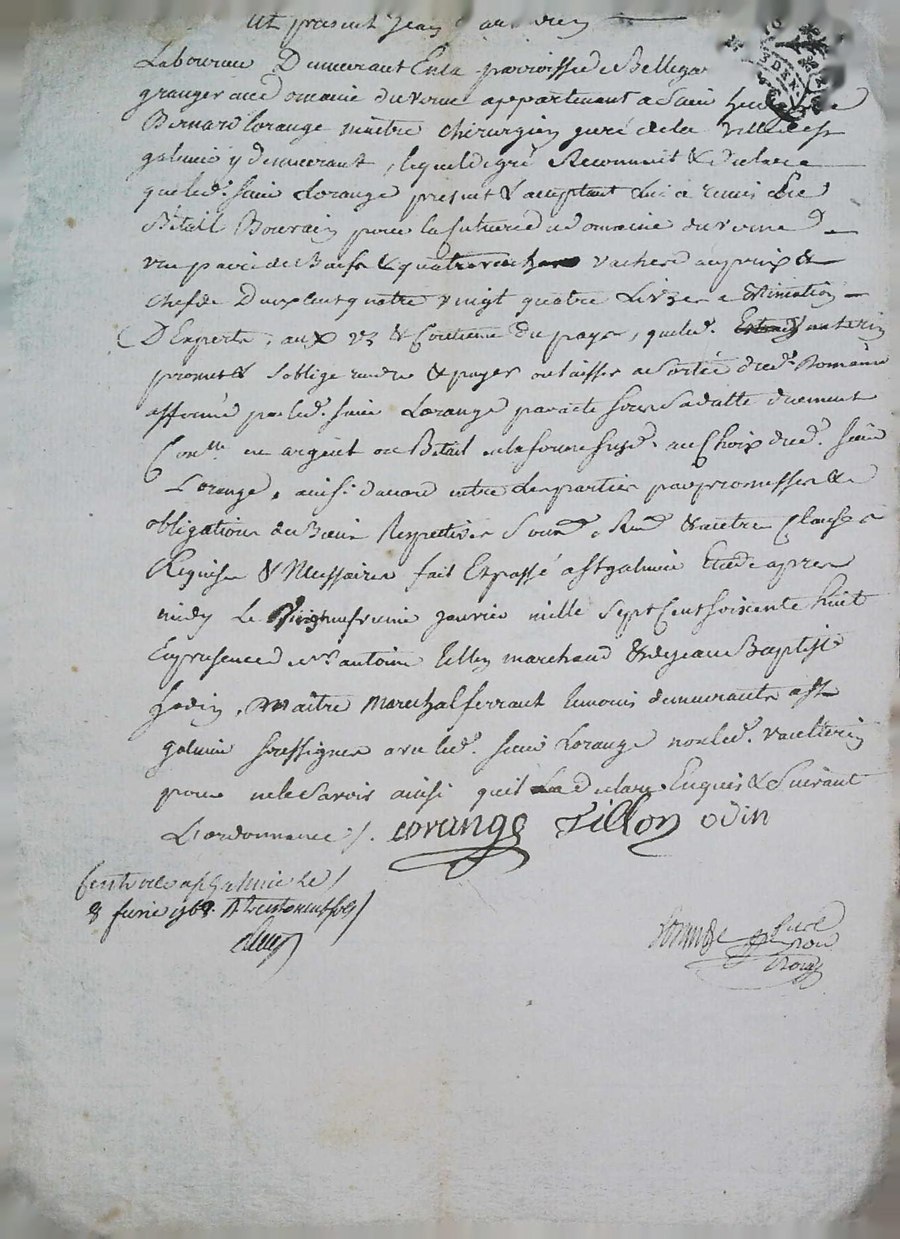 Est present Jean
Laboureur Demeurant En la parroisse de Bellega
granger au domaine du verne appartenant a Sieur
Bernard Lorange maitre chirurgien juré de la ville de st
galmier y demeurant, lequel de gré Reconnoit & declare
que led. Sieur Lorange present & acceptant lui a remis de
Bétail Bouvain pour la culture du domaine du verne
une paire de Bœufs & quatre vaches au prix &
chef de Deux cent quatre vingt quatre Livres a Estimation
D'Experts, aux us & Coutume du payis, que led.
promet & s'oblige rendre & payer ou laisser a sa sortée dud. Domaine
affermé par led. Sieur Lorange par acte sous sa datte duement
Con.lle en argent ou Betail en la forme susd. au Choix dud. Sieur
Lorange, ainsi d'accord entre les parties par promesses &
obligations de Biens Respectives Soum. Ren. & autre Clauses a
Requises & Necessaires fait Et passé a st galmier Etude apres
midy Le Vingt neufvieme janvier mille Sept Cent soixante huit
En presence de sr. antoine tillon marchand & de jean Baptiste
hodin, Maître Marechal ferrant temoins demeurants a st
galmier soussignes avec led. Sieur Lorange non led. vaulterin
pour ne le savoir ainsi qu'il La declaré Enquis & Suivant
L'ordonnance ./. Lorange Tillon odin
Controllé a st Galmier Le
8 fevrier 1768. R treize sols
Lorange